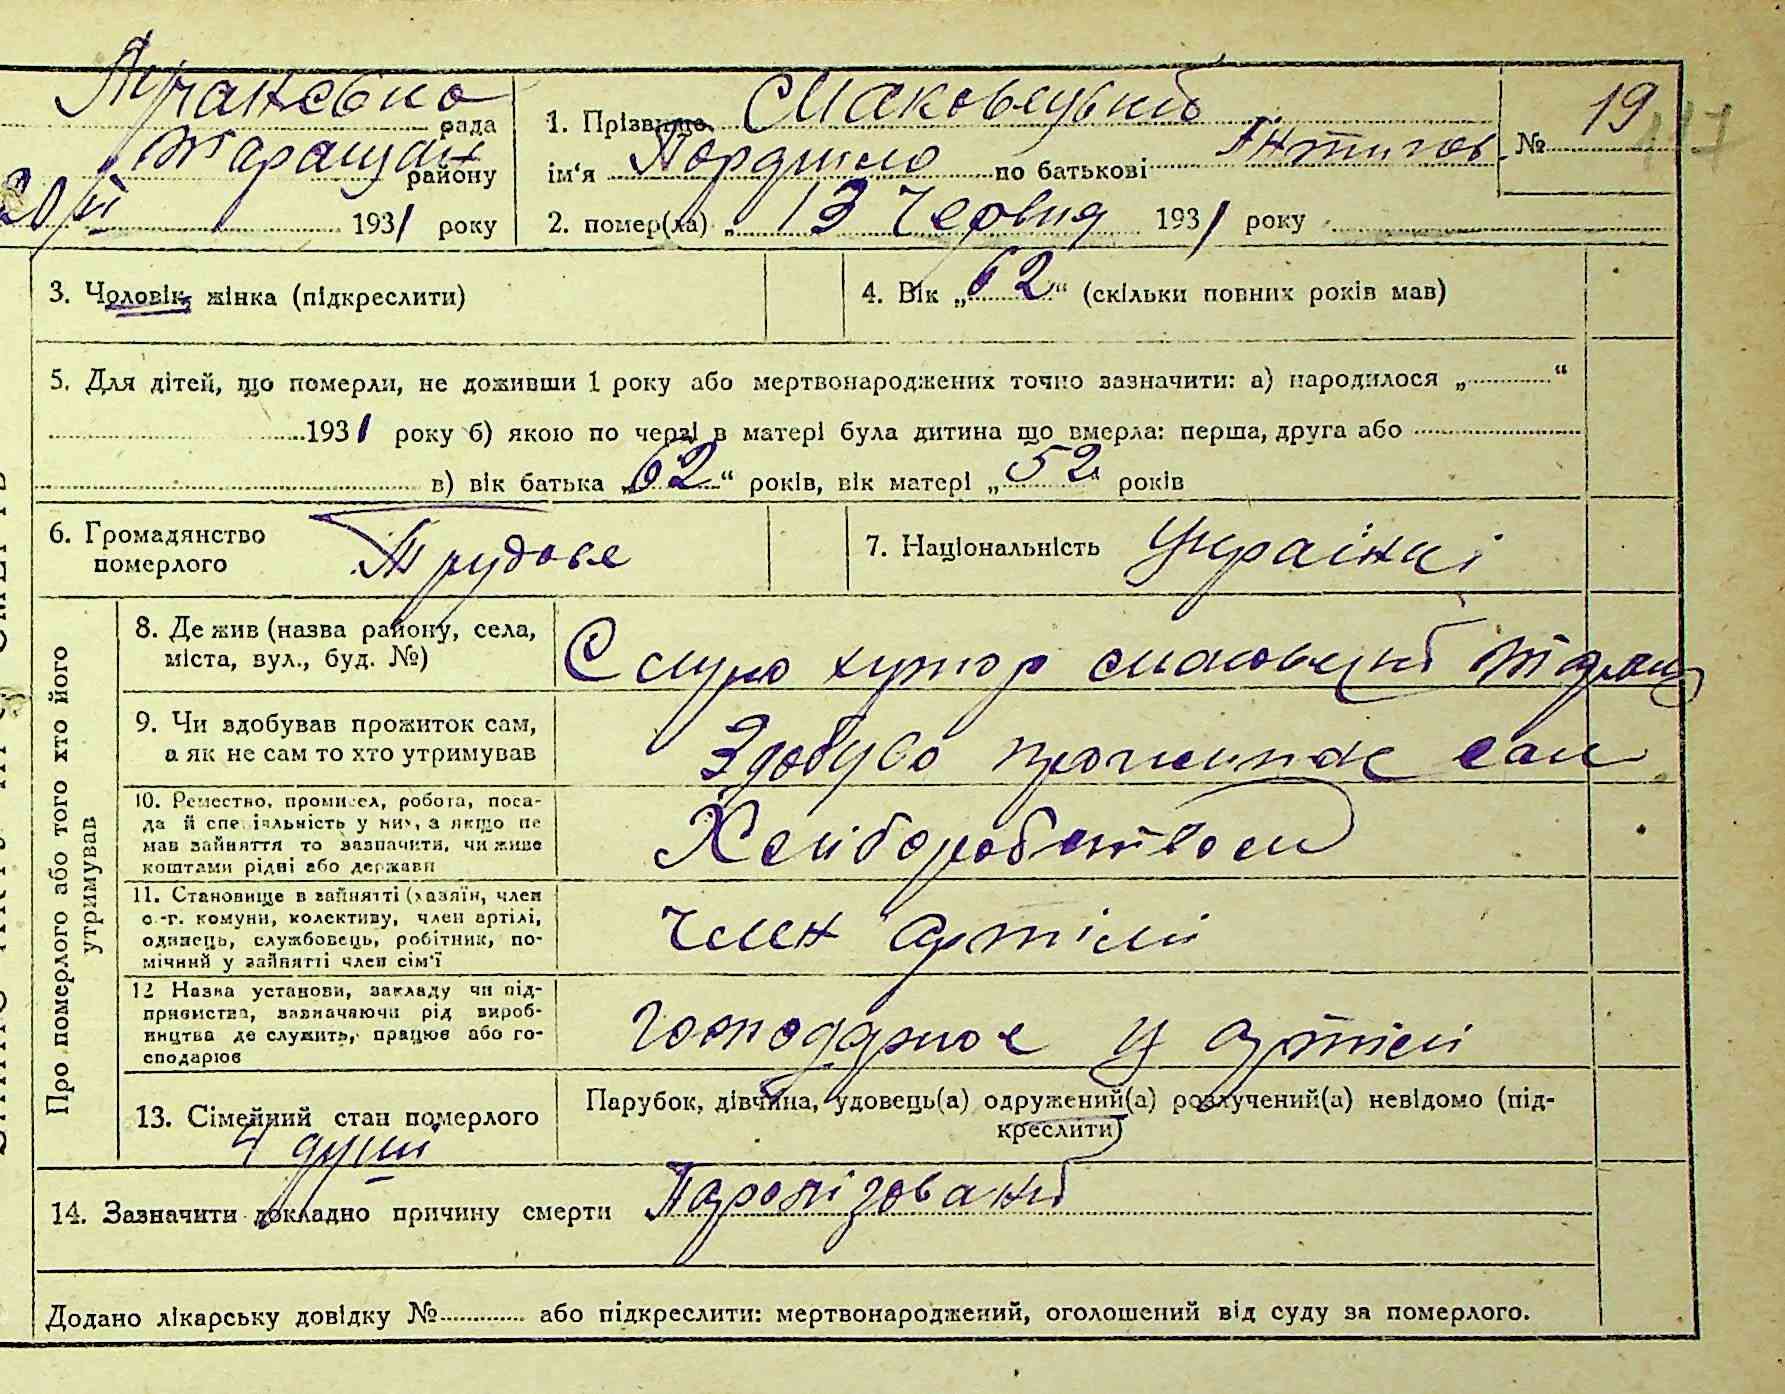 рада
Таращан району
20/VI 1931 року
1. Прізвище Смаковецький
ім‘я по батькові
№ 19
2. помер(ла) „ 13 Червня 1931 року
3. Чоловік, жінка (підкреслити)
4. Вік „62“ (скільки повних років мав)
5. Для дітей, що померли, не доживши 1 року або мертвонароджених точно зазначити: а) народилося „ “
1931 року б) якою по черзі в матері була дитина що вмерла: перша, друга або
в) вік батька „62“ років, вік матері „52“ років
6. Громадянство
померлого
Трудове
7. Національність
Українці
Про померлого або того хто його
утримував
8. Де жив (назва району, села,
міста, вул., буд. №)
хутор смаковецкий
9. Чи здобував прожиток сам,
а як не сам то хто утримував
Здобував прожиток сам
10. Ремество, промисел, робота, поса-
да й спеціяльність у них, а якщо не
мав зайняття то зазначити, чи живе
коштами рідні або держави
Хліборобством
11. Становище в зайнятті (хазяїн, член
с.-г. комуни, колективу, член артілі,
одинець, службовець, робітник, по-
мічний у зайнятті член сім‘ї
член артілі
12 Назва установи, закладу чи під-
приємства, зазначаючи рід вироб-
ництва де служить, працює або го-
сподарює
господарює у артілі
13. Сімейний стан померлого
4 душі
Парубок, дівчина, удовець(а) одружений(а) розлучений(а) невідомо (під-
креслити)
14. Зазначити докладно причину смерти Паролізований
Додано лікарську довідку № або підкреслити: мертвонароджений, оголошений від суду за померлого.